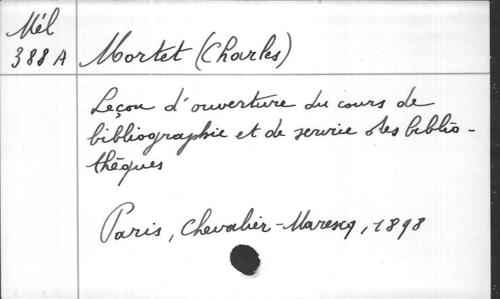 Mél
388 A
Mortet (Charles)
Leçon d'ouverture du cours de
bibliographie et de service des biblio-
thèques
Paris, Chevalier-Marescq, 1898